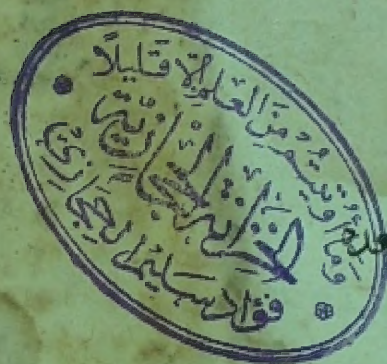 وَمَا أُوتِيتُمْ مِنَ الْعِلْمِ إِلَّا قَلِيلًا
الخزانة الحجازية
فؤاد سليم الحجازي